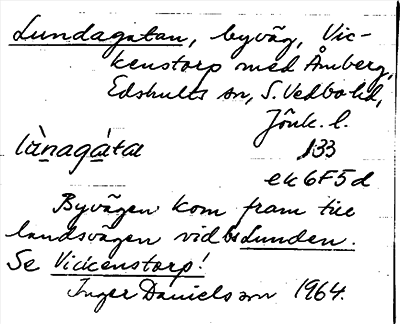 Lundagatan, byväg, Vic-
kenstorp med Åmberg,
Edshults sn, S. Vedbo hd,
Jönk. l.
lànagáta 133
ek 6F5d
Byvägen kom fram till
landsvägen vid Lunden.
Se Vickenstorp!
Inger Danielsson 1964.